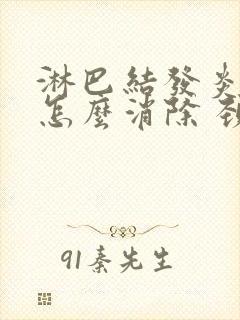 淋巴結發炎
怎麼消除 頸
91秦先生